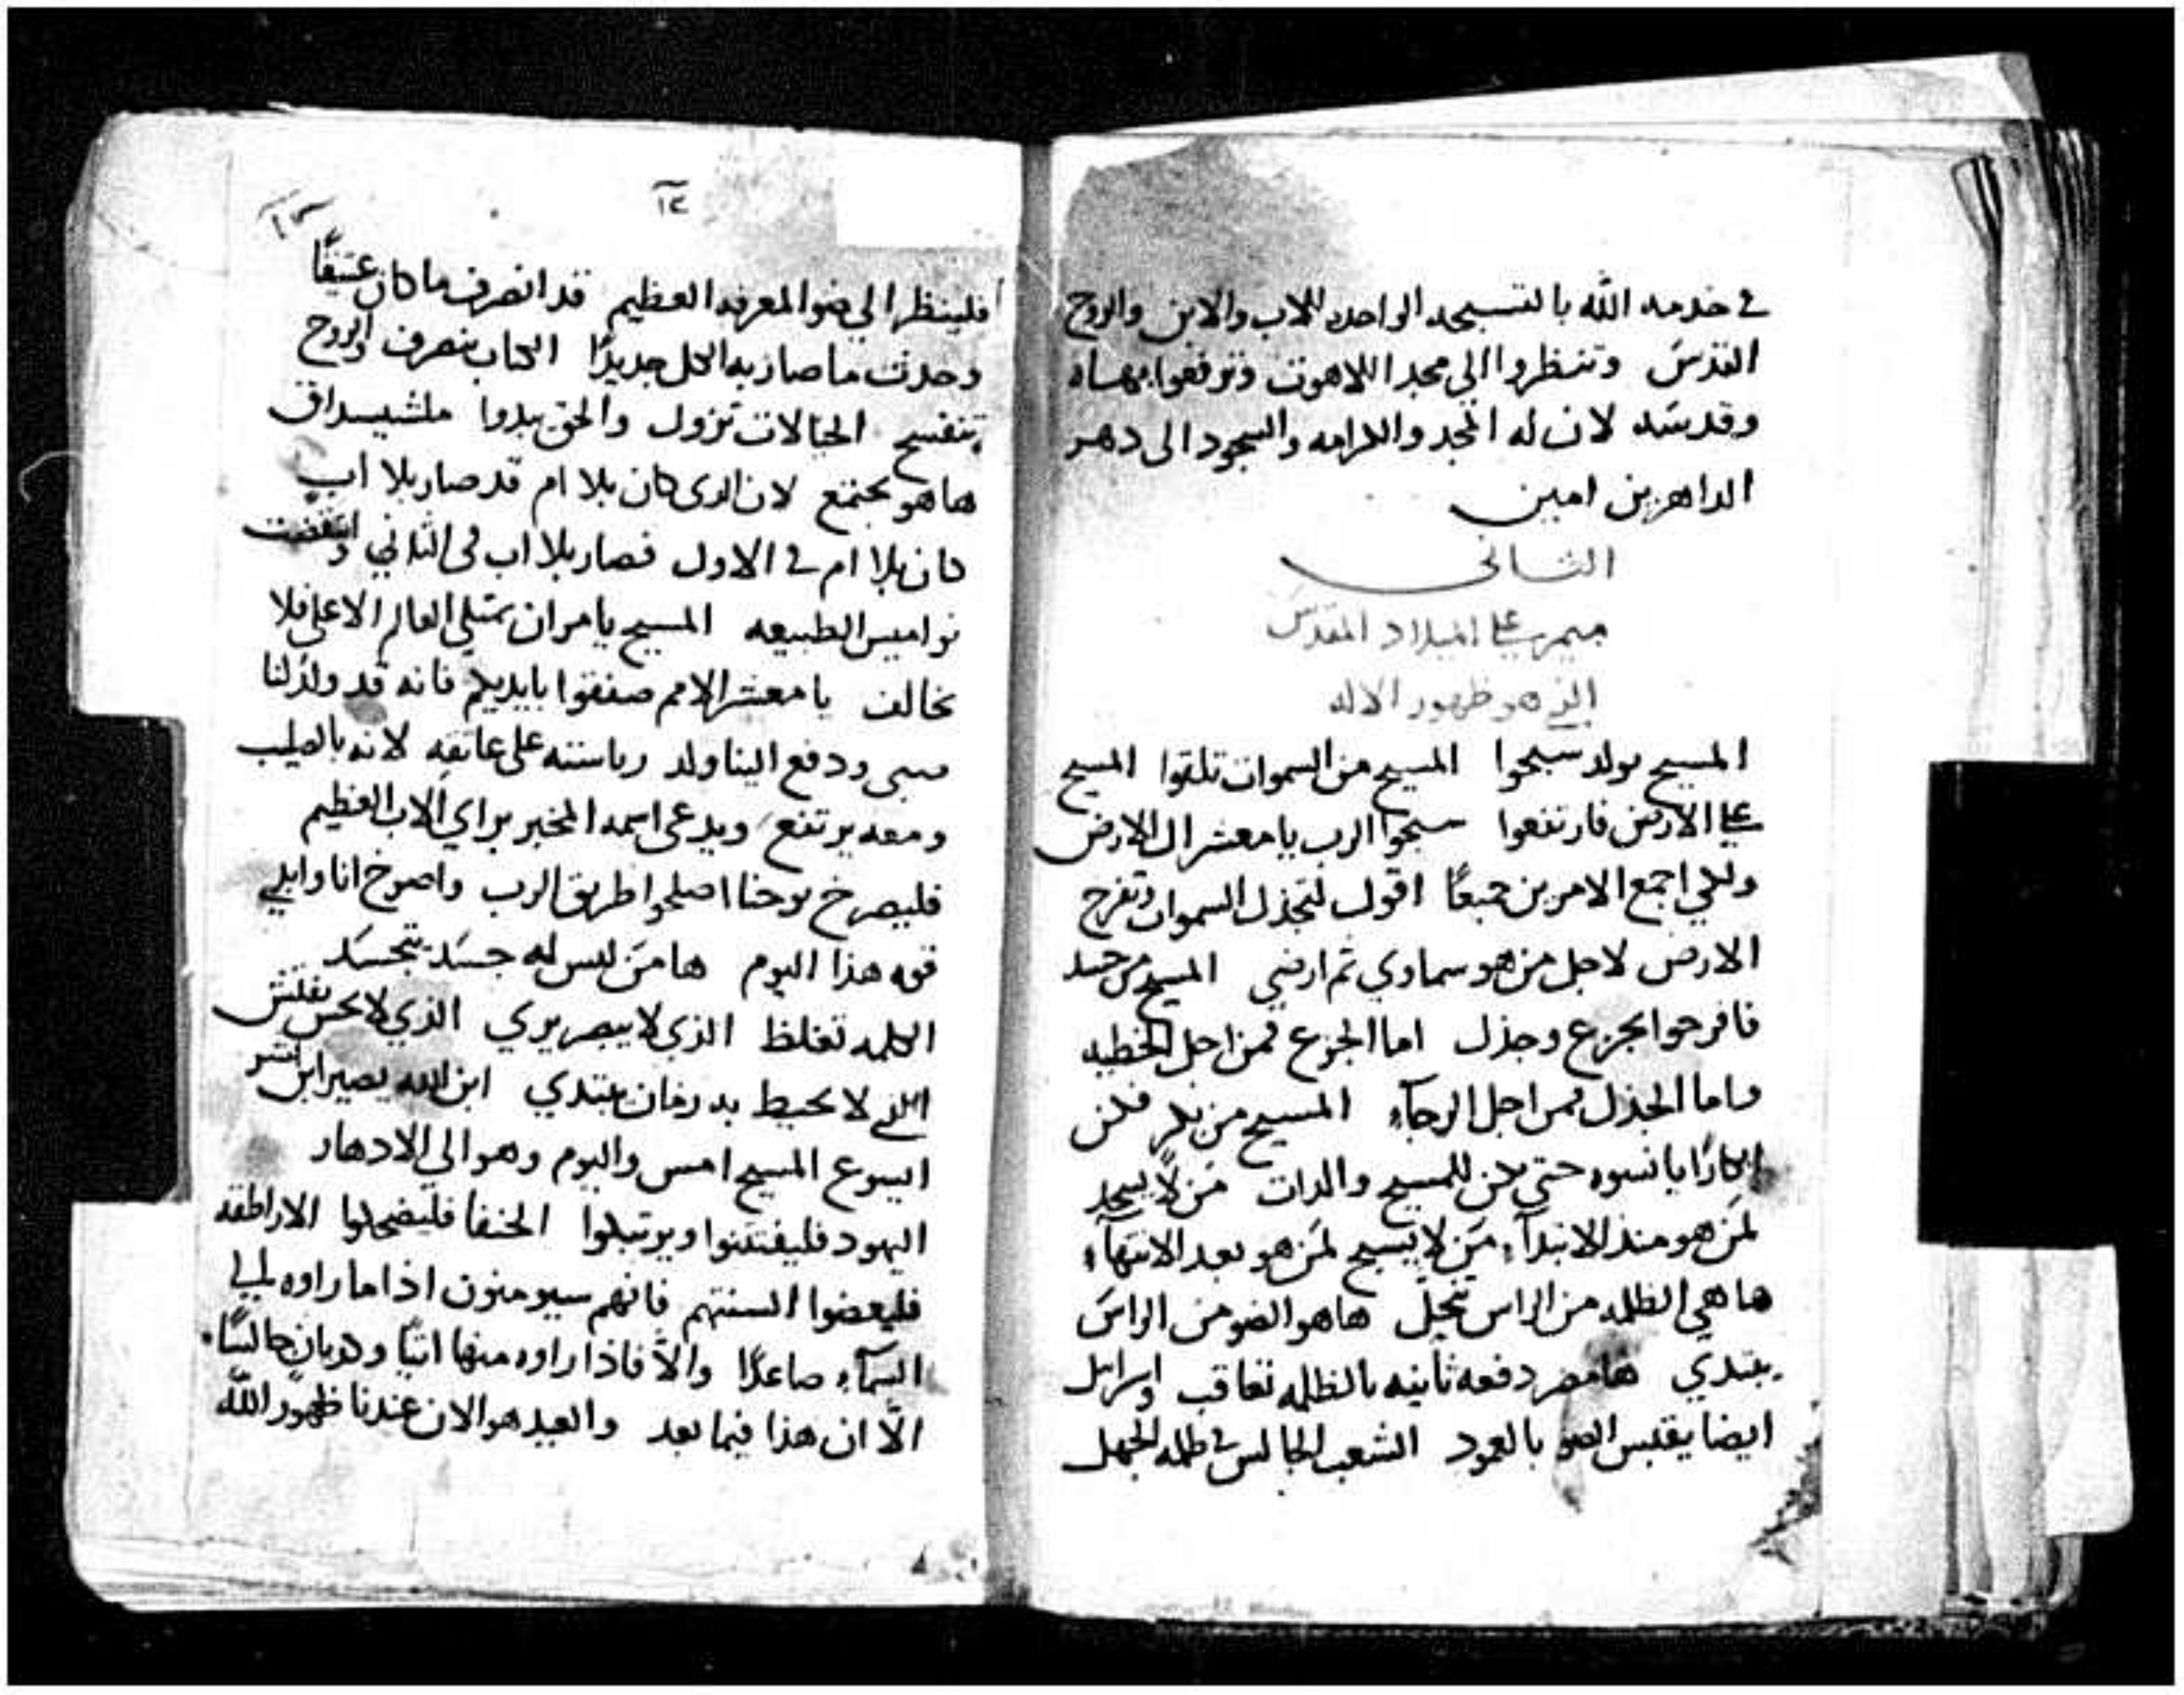 في خدمه الله بالتسبحه الواحده للاب والابن والروح
القدس وتنظروا الي مجد اللاهوت وترفعوا بهاه
وقدسه لان له المجد والكرامه والسجود الى دهر
الداهرين امين
الثاني
ميمر علي الميلاد المقدس
الذي هو ظهور الاله
المسيح يولد سبحوا المسيح من السموات تلقوا المسيح
علي الارض فارتفعوا سبحوا الرب يا معشر ال الارض
ولكي اجمع الامرين جميعًا اقول لتجذل السموات وتفرح
الارض لاجل من هو سماوي ثم ارضي المسيح من جسد
فافرحوا بجزع وجذل اما الجزع فمن اجل الخطيه
واما الجذل فمن اجل الرجآء المسيح من بكر فكن
ابكارًا يا نسوه حتي تكن للمسيح والدات مَن لا يسجد
لمَن هو منذ الابتدآء مَن لا يسبح لمَن هو بعد الانتهآء
ها هي الظلمه من الراس تنحل ها هو الضو من الراس
يبتدي ها مصر دفعه ثانيه بالظلمه تعاقب واسرايل
ايضا يقتبس الضو بالعمود الشعب الجالس في ظلمه الجهل
١٢
فلينظر الي ضو المعرفه العظيم قد انصرف ما كان عتيقًا
وحدث ما صار به الكل جديدًا الكتاب ينصرف والروح
تنفسح الخيالات تزول والحق يبدوا ملشيسداق
ها هو يجتمع لان الدى كان بلا ام قد صار بلا اب
كان بلا ام في الاول فصار بلا اب فى الثاني وانتقضت
نواميس الطبيعه المسيح يامر ان يمتلي العالم الاعلى فلا
نخالف يا معشر الامم صفقوا بايديكم فانه قد ولد لنا
صبى ودفع الينا ولد رياسته على عاتقه لانه بالصليب
ومعه يرتفع ويدعى اسمه المخبر براي الاب العظيم
فليصرخ يوحنا اصلحوا طريق الرب واصرخ انا وابلي
قوه هذا اليوم ها مَن ليس له جسَد يتجسَد
الكلمه تغلظ الذي لا يبصر يري الذي لا يحس يفتش
الذي لا يحيط به زمان يبتدي ابن الله يصير ابن البشر
ايسوع المسيح امس واليوم وهو الي الادهار
اليهود فليفتتنوا ويرتبكوا الحنفا فليضحكوا الاراطقه
فليعضوا السنتهم فانهم سيومنون اذا ما راوه الي
السمآء صاعدًا والاّ فاذا راوه منها اتيًا وديان جالسًا
الاّ ان هذا فيما بعد والعيد هو الان عندنا ظهور الله